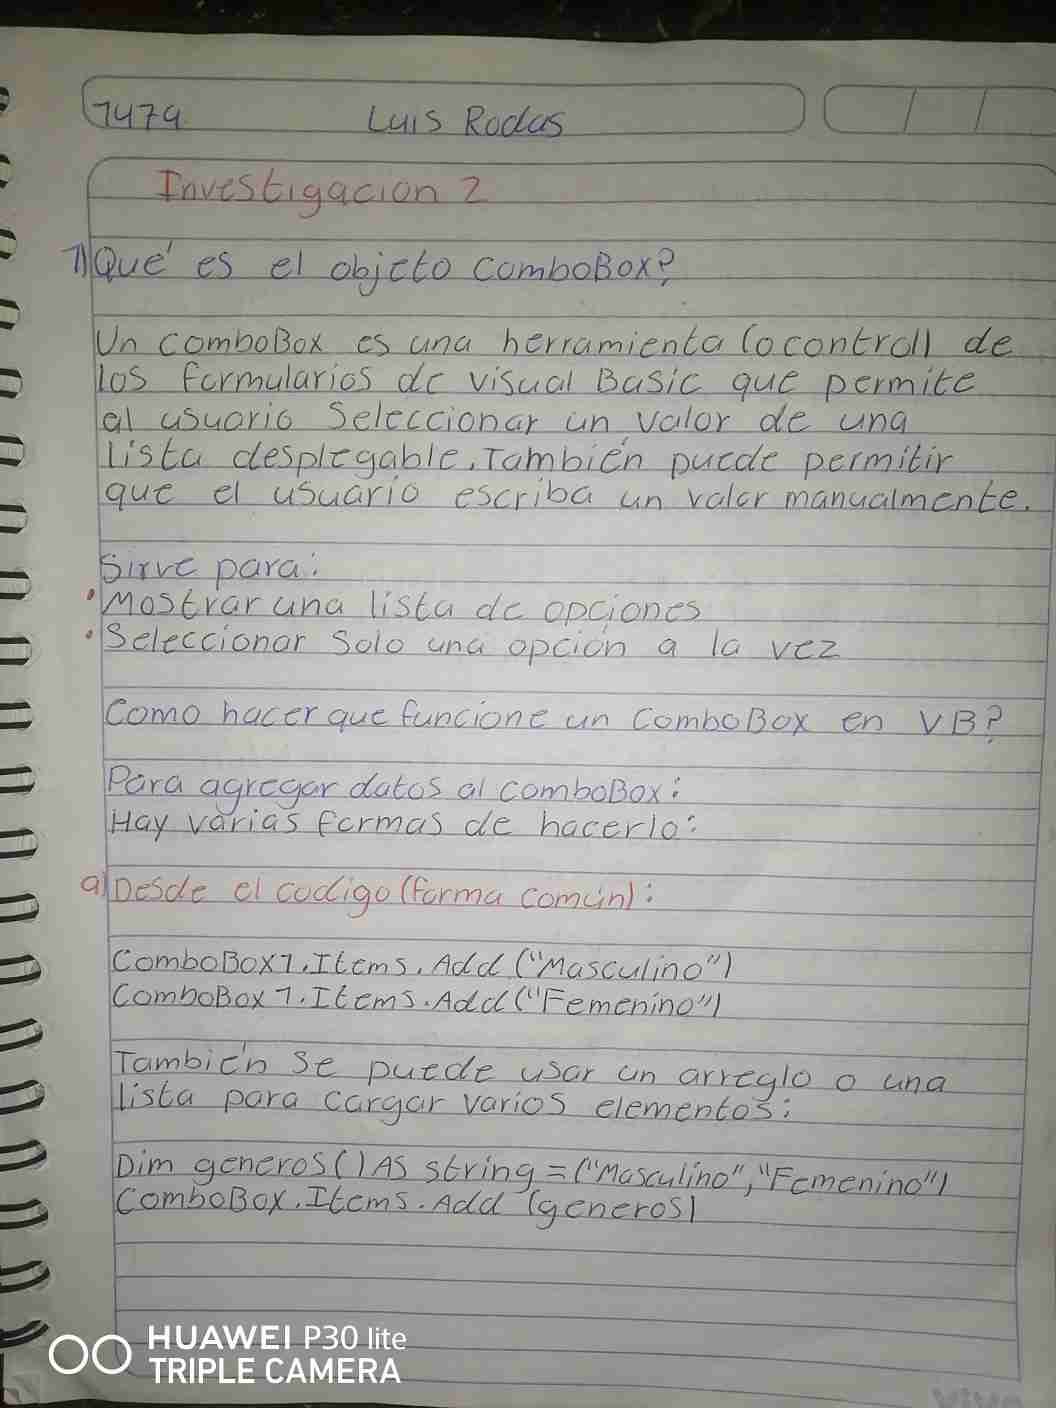 7479 Luis Rodas
Investigacion 2
1) Qué es el objeto comboBox?
Un comboBox es una herramienta (o control) de
los formularios de visual Basic que permite
al usuario seleccionar un valor de una
lista desplegable. También puede permitir
que el usuario escriba un valor manualmente.
Sirve para:
• Mostrar una lista de opciones
• Seleccionar solo una opción a la vez
Como hacer que funcione un comboBox en VB?
Para agregar datos al comboBox:
Hay varias formas de hacerlo:
a) Desde el codigo (forma común):
ComboBox1.Items.Add ("Masculino")
ComboBox1.Items.Add ("Femenino")
También se puede usar un arreglo o una
lista para cargar varios elementos:
Dim generos () As string = ("Masculino", "Femenino")
ComboBox.Items.Add (generos)
HUAWEI P30 lite
TRIPLE CAMERA